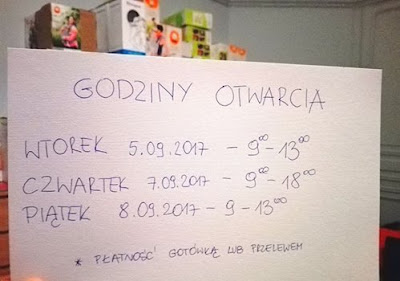 GODZINY OTWARCIA
WTOREK 5.09.2017 - 9⁰⁰-13⁰⁰
CZWARTEK 7.09.2017 - 9⁰⁰-18⁰⁰
PIĄTEK 8.09.2017 - 9-13⁰⁰
* PŁATNOŚĆ GOTÓWKĄ LUB PRZELEWEM